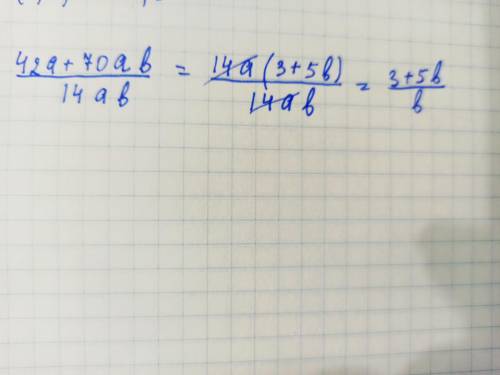 42a + 70ab / 14ab = 14a(3+5b) / 14ab = 3+5b / b